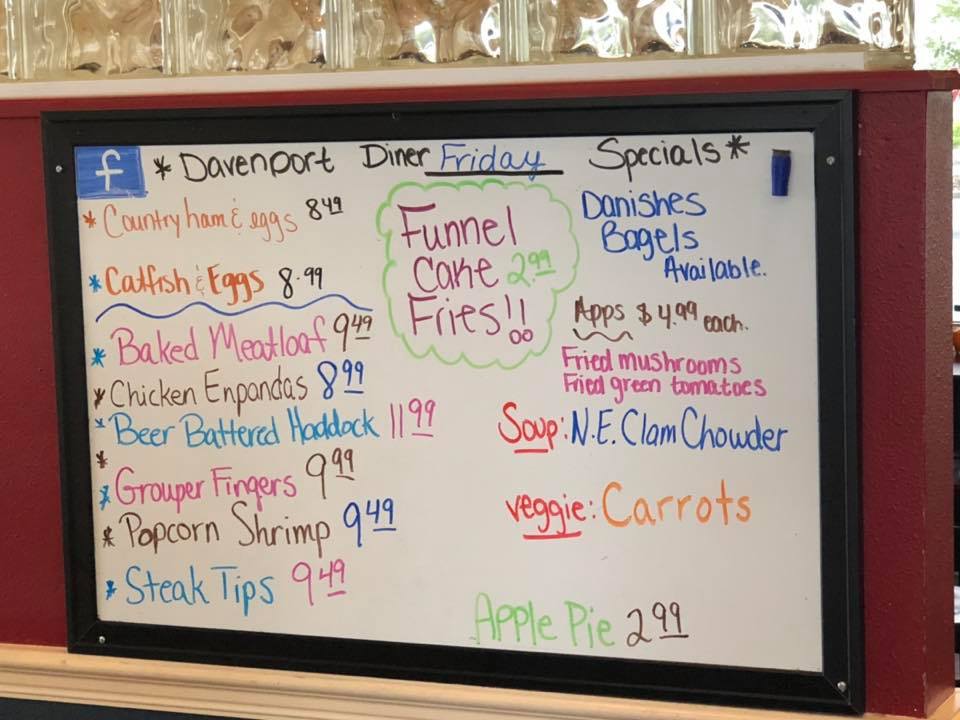 f * Davenport Diner Friday Specials *
* Country ham & eggs 8.49
* Catfish & Eggs 8.99
* Baked Meatloaf 9.49
* Chicken Enpandas 8.99
* Beer Battered Haddock 11.99
* Grouper Fingers 9.99
* Popcorn Shrimp 9.49
* Steak Tips 9.49
Funnel
Cake 2.99
Fries!!
Danishes
Bagels
Available.
Apps $4.99 each.
Fried mushrooms
Fried green tomatoes
Soup: N.E. Clam Chowder
veggie: Carrots
Apple Pie 2.99